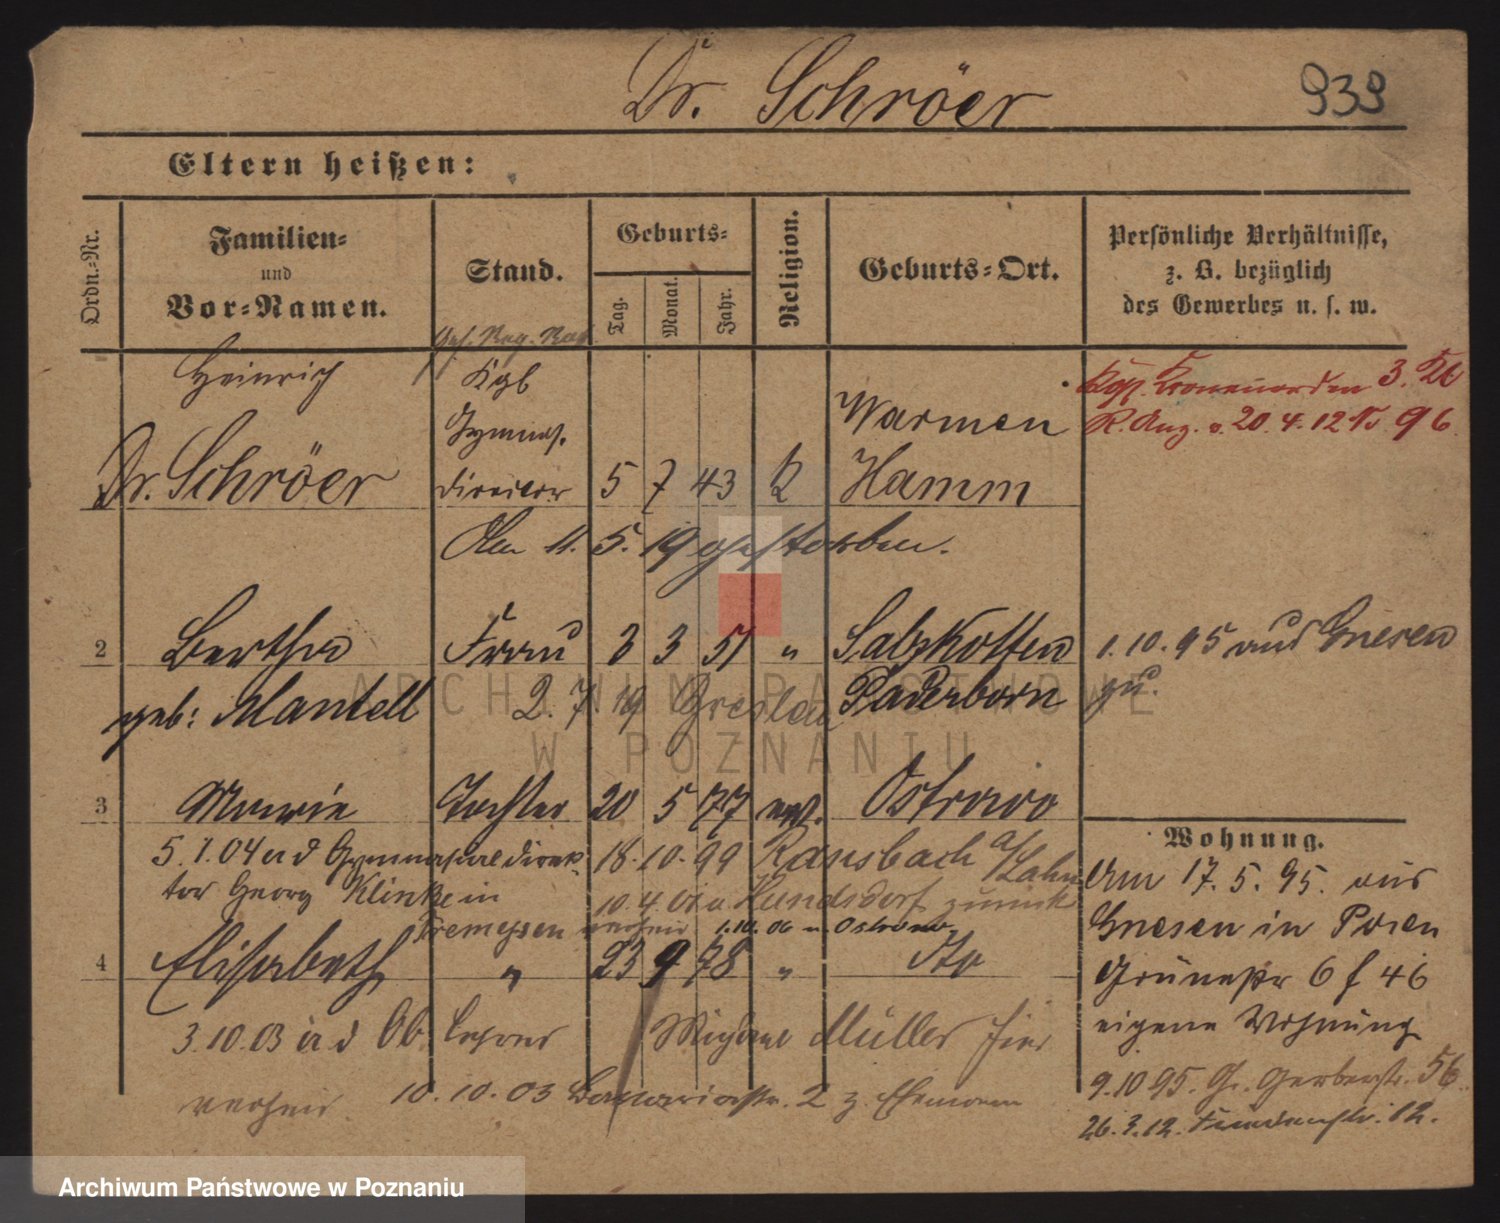 Dr. Schröer 939
Eltern heißen:
Ordn.-Nr.
Familien- und Vor-Namen.
Stand.
Geburts-
Tag. Monat. Jahr.
Religion.
Geburts-Ort.
Persönliche Verhältnisse,
z. B. bezüglich
des Gewerbes u. s. w.
Geh. Reg. Rat
Heinrich Kgl
Kgl. Kronenorden 3. Kl
Gymnas. Warmen
R. Anz. v. 20. 4. 12 No 96
Dr. Schröer Director 5 7 43 K Hamm
Am 11. 5. 19 gestorben.
2 Bertha Frau 3 3 51 " Salzkotten 1. 10. 95 aus Gnesen
geb: Mantell 2. 7 19 Breslau Paderborn zu.
ARCHIWUM PAŃSTWOWE
W POZNANIU
3 Marie Tochter 20 5 77 ev. Ostrowo
Wohnung.
5. 1. 04 a d Gymnasialdirek- 18. 10. 99 Ransbach a/Lahn
tor Georg Klinke in 10. 4. 01 a. Hundsdorf zurück
Tremessen verheir 1. 10. 06 n. Ostrowo.
4 Elisabeth " 23 9 78 " Dto
3. 10. 03 a d Ob. Lehrer Müller hier
verheir. 10. 10. 03 2 z. Ehemann
Am 17. 5. 95. aus
Gnesen in Posen
Grünestr 6 f 46
eigene Wohnung
9. 10 95. Gr. Gerberstr. 56.
26. 3. 12. 12.
Archiwum Państwowe w Poznaniu